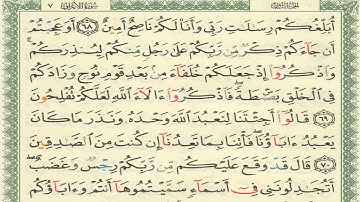 أُبَلِّغُكُمْ رِسَٰلَٰتِ رَبِّى وَأَنَا۠ لَكُمْ نَاصِحٌ أَمِينٌ ٦٨ أَوَعَجِبْتُمْ
أَن جَآءَكُمْ ذِكْرٌ مِّن رَّبِّكُمْ عَلَىٰ رَجُلٍ مِّنكُمْ لِيُنذِرَكُمْ
وَٱذْكُرُوٓا۟ إِذْ جَعَلَكُمْ خُلَفَآءَ مِنۢ بَعْدِ قَوْمِ نُوحٍ وَزَادَكُمْ
فِى ٱلْخَلْقِ بَصْۜطَةً فَٱذْكُرُوٓا۟ ءَالَآءَ ٱللَّهِ لَعَلَّكُمْ تُفْلِحُونَ
٦٩ قَالُوٓا۟ أَجِئْتَنَا لِنَعْبُدَ ٱللَّهَ وَحْدَهُۥ وَنَذَرَ مَا كَانَ
يَعْبُدُ ءَابَآؤُنَا فَأْتِنَا بِمَا تَعِدُنَآ إِن كُنتَ مِنَ ٱلصَّٰدِقِينَ
٧٠ قَالَ قَدْ وَقَعَ عَلَيْكُم مِّن رَّبِّكُمْ رِجْسٌ وَغَضَبٌ
أَتُجَٰدِلُونَنِى فِىٓ أَسْمَآءٍ سَمَّيْتُمُوهَآ أَنتُمْ وَءَابَآؤُكُم